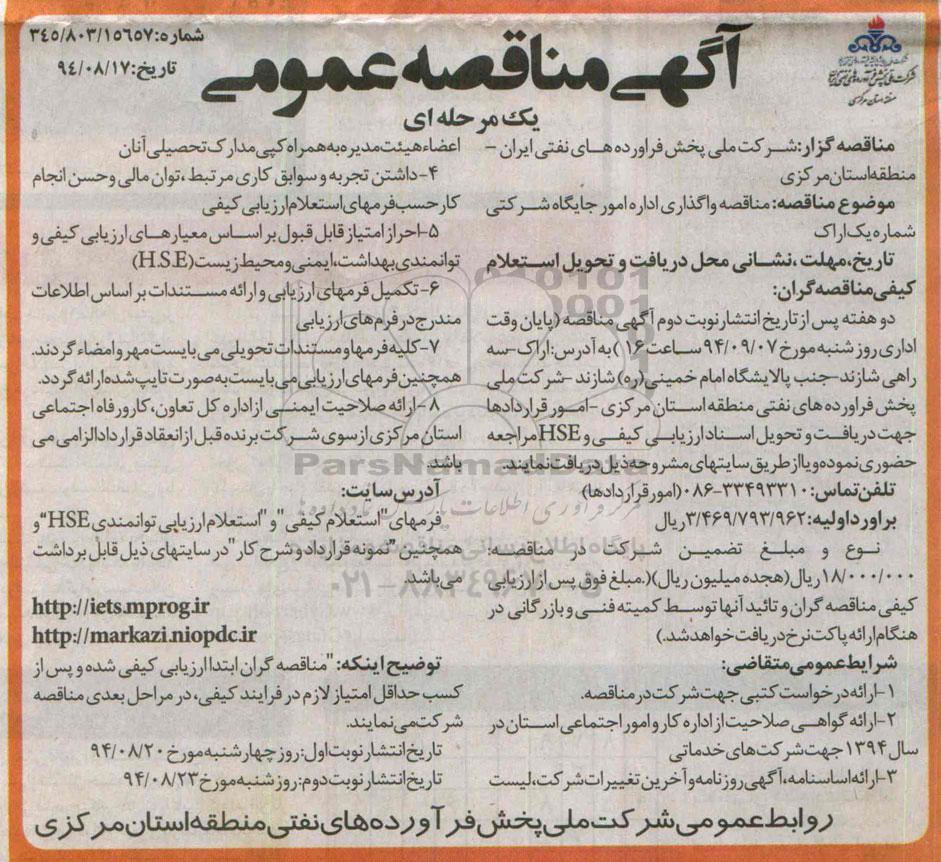 شماره:۳۴۵/۸۰۳/۱۵۶۵۷
تاریخ:۹۴/۰۸/۱۷
آگهی مناقصه عمومی
یک مرحله ای
شرکت ملی پخش فرآورده‌های نفتی ایران
منطقه استان مرکزی
مناقصه گزار:شرکت ملی پخش فراورده های نفتی ایران –
منطقه استان مرکزی
موضوع مناقصه: مناقصه واگذاری اداره امور جایگاه شرکتی
شماره یک اراک
تاریخ،مهلت ،نشانی محل دریافت و تحویل استعلام
کیفی مناقصه گران:
دو هفته پس از تاریخ انتشار نوبت دوم آگهی مناقصه (پایان وقت
اداری روز شنبه مورخ ۹۴/۰۹/۰۷ ساعت ۱۶ ) به آدرس: اراک-سه
راهی شازند-جنب پالایشگاه امام خمینی(ره) شازند -شرکت ملی
پخش فراورده های نفتی منطقه استان مرکزی -امور قراردادها
جهت دریافت و تحویل اسناد ارزیابی کیفی و HSE مراجعه
حضوری نموده و یا از طریق سایتهای مشروحه ذیل دریافت نمایند.
تلفن تماس: ۳۳۴۹۳۳۱۰-۰۸۶(امور قراردادها)
برآورد اولیه:۳/۴۶۹/۷۹۳/۹۶۲ریال
نوع و مبلغ تضمین شرکت در مناقصه:
۱۸/۰۰۰/۰۰۰ریال (هجده میلیون ریال)(.مبلغ فوق پس از ارزیابی
کیفی مناقصه گران و تائید آنها توسط کمیته فنی و بازرگانی در
هنگام ارائه پاکت نرخ دریافت خواهد شد.)
شرایط عمومی متقاضی:
۱-ارائه درخواست کتبی جهت شرکت در مناقصه.
۲-ارائه گواهی صلاحیت از اداره کار و امور اجتماعی استان در
سال ۱۳۹۴ جهت شرکت های خدماتی
۳-ارائه اساسنامه، آگهی روزنامه و آخرین تغییرات شرکت، لیست
اعضاء هیئت مدیره به همراه کپی مدارک تحصیلی آنان
۴-داشتن تجربه و سوابق کاری مرتبط ،توان مالی و حسن انجام
کار حسب فرمهای استعلام ارزیابی کیفی
۵-احراز امتیاز قابل قبول بر اساس معیارهای ارزیابی کیفی و
توانمندی بهداشت، ایمنی و محیط زیست (H.S.E)
۶-تکمیل فرمهای ارزیابی و ارائه مستندات بر اساس اطلاعات
مندرج در فرم های ارزیابی
۷-کلیه فرمها و مستندات تحویلی می بایست مهر و امضاء گردند.
همچنین فرمهای ارزیابی می بایست به صورت تایپ شده ارائه گردد.
۸-ارائه صلاحیت ایمنی از اداره کل تعاون، کار و رفاه اجتماعی
استان مرکزی از سوی شرکت برنده قبل از انعقاد قرارداد الزامی می
باشد.
آدرس سایت:
فرمهای "استعلام کیفی" و "استعلام ارزیابی توانمندی HSE" و
همچنین "نمونه قرارداد و شرح کار" در سایتهای ذیل قابل برداشت
می باشد
http://iets.mprog.ir
http://markazi.niopdc.ir
توضیح اینکه: "مناقصه گران ابتدا ارزیابی کیفی شده و پس از
کسب حداقل امتیاز لازم در فرایند کیفی، در مراحل بعدی مناقصه
شرکت می نمایند.
تاریخ انتشار نوبت اول: روز چهارشنبه مورخ ۹۴/۰۸/۲۰
تاریخ انتشار نوبت دوم: روز شنبه مورخ ۹۴/۰۸/۲۳
روابط عمومی شرکت ملی پخش فرآورده های نفتی منطقه استان مرکزی
ParsNamadData